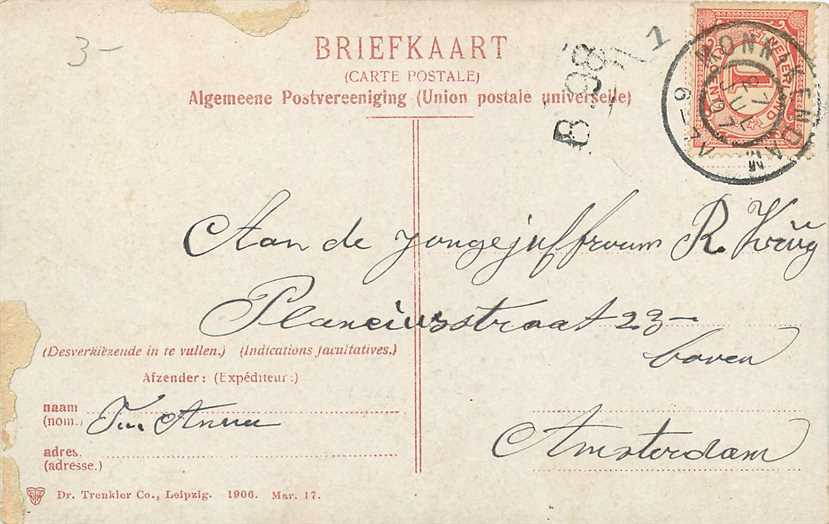 3-
BRIEFKAART
(CARTE POSTALE)
Algemeene Postvereeniging (Union postale universelle)
B 98
1
MONNIKENDAM
Aan de jongejuffrouw R.
Planciusstraat 23-
boven
Amsterdam
(Desverkiezende in te vullen.) (Indications facultatives.)
Afzender: (Expéditeur:)
naam
(nom.)
Anna
adres.
(adresse.)
Dr. Trenkler Co., Leipzig. 1906. Mar. 17.